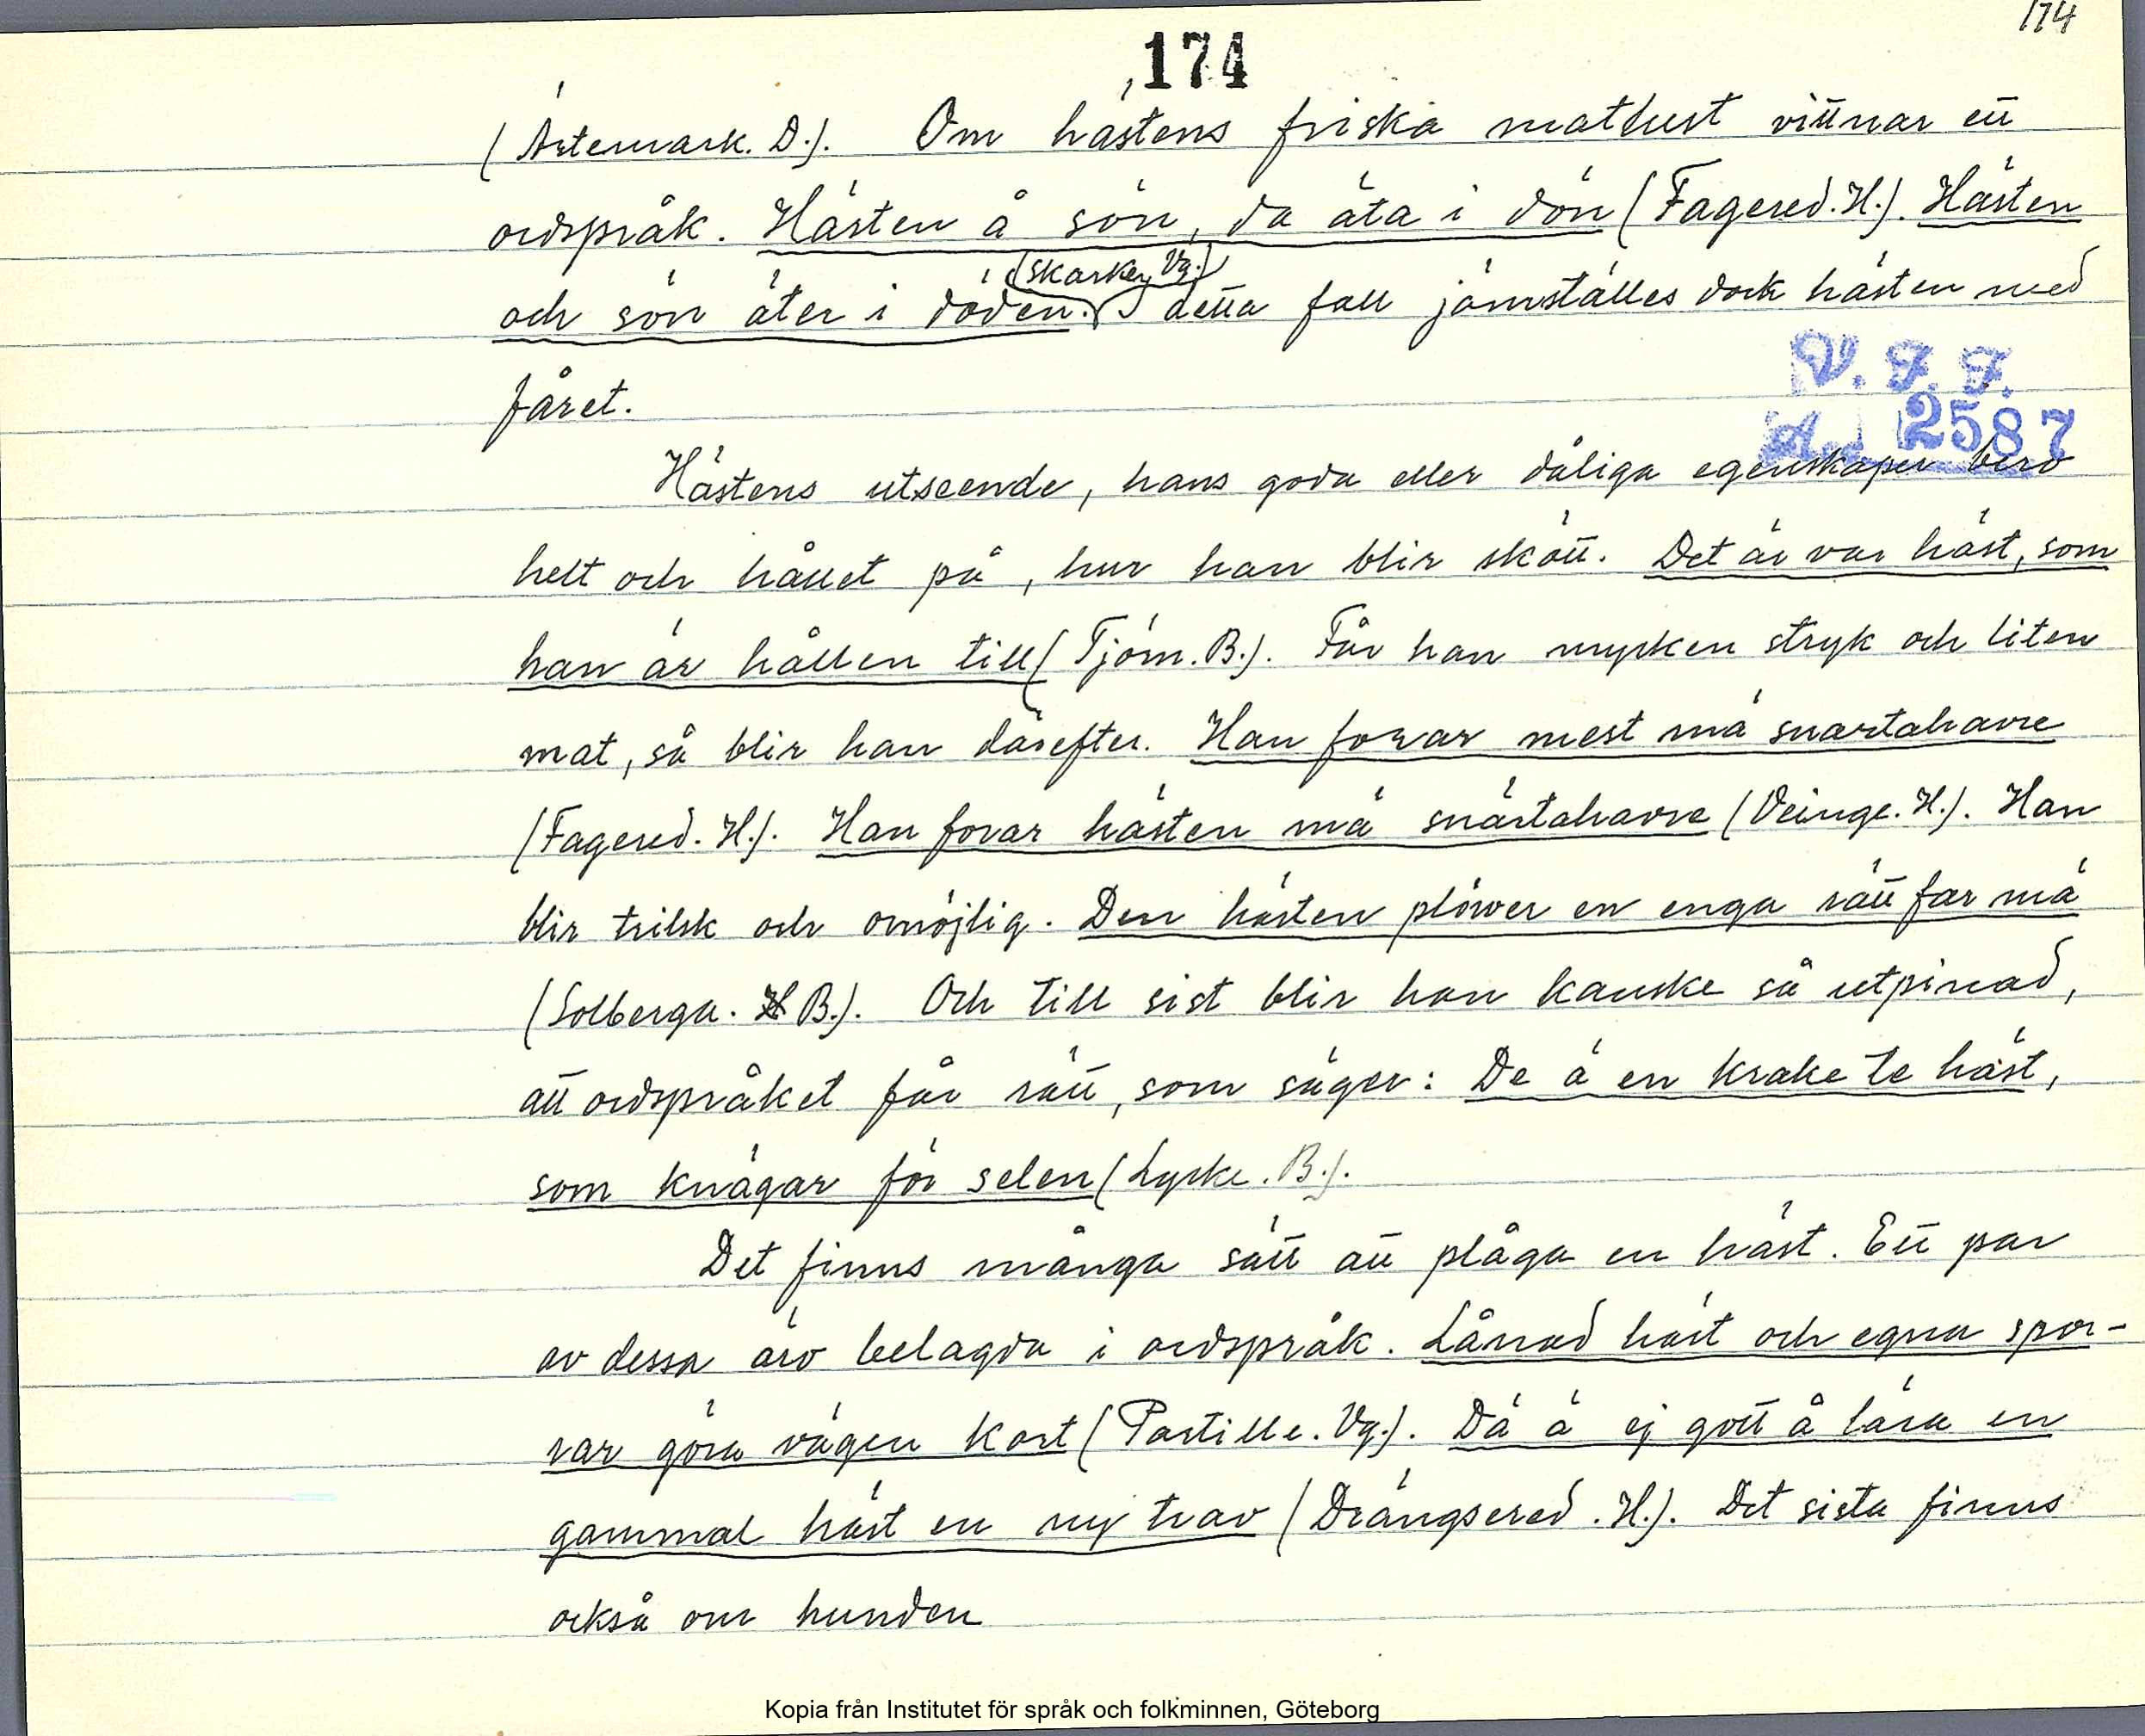 174
174
(Ärtemark. D.). Om hästens friska matlust vittnar ett
ordspråk. Hästen å sön, da äta i dön (Fagered. H.). Hästen
(Skarke, Vg.)
och sön äter i döden. I detta fall jämställes dock hästen med
fåret.
V. F. F.
A. 2587
Hästens utseende, hans goda eller dåliga egenskaper bero
helt och hållet på, hur han blir skött. Det är var häst, som
han är hållen till (Tjörn. B.). Får han mycken stryk och liten
mat, så blir han därefter. Han forar mest mä snartahavre
(Fagered. H.). Han forar hästen mä snärtahavre (Veinge. H.). Han
blir trilsk och omöjlig. Den hästen plöwer en enga rätt får mä
(Solberga. B.). Och till sist blir han kanske så utpinad,
att ordspråket får rätt, som säger: De ä en krake te häst,
som knägar för selen (Lycke. B.).
Det finns många sätt att plåga en häst. Ett par
av dessa äro belagda i ordspråk. Lånad häst och egna spor-
rar göra vägen kort (Partille. Vg.). Dä ä ej gott å lära en
gammal häst en ny trav (Drängsered. H.). Det sista finns
också om hunden
Kopia från Institutet för språk och folkminnen, Göteborg